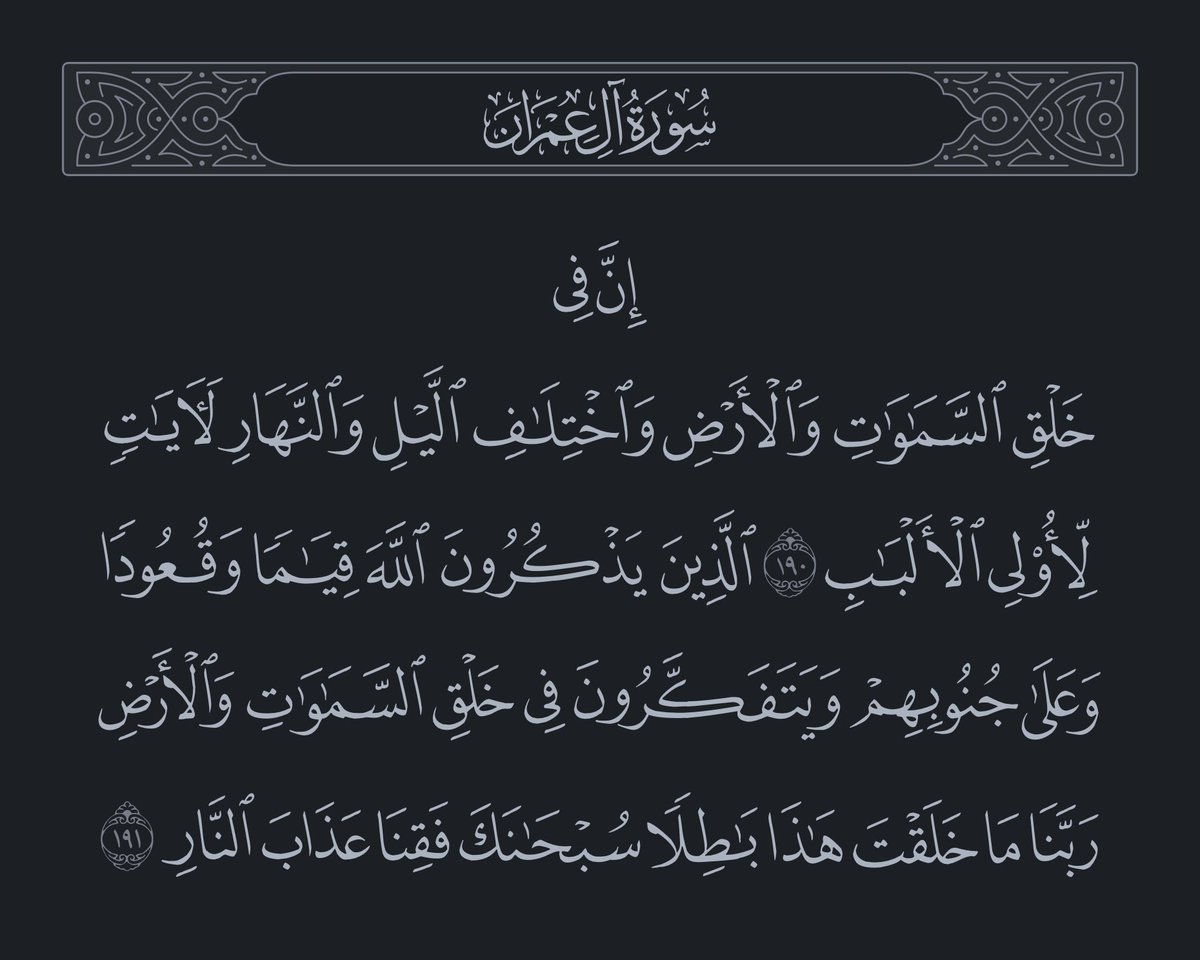 سُورَةُ آلِ عِمْرَان
إِنَّ فِى
خَلْقِ ٱلسَّمَـٰوَٰتِ وَٱلْأَرْضِ وَٱخْتِلَـٰفِ ٱلَّيْلِ وَٱلنَّهَارِ لَـَٔايَـٰتٍ
لِّأُو۟لِى ٱلْأَلْبَـٰبِ ١٩٠ ٱلَّذِينَ يَذْكُرُونَ ٱللَّهَ قِيَـٰمًا وَقُعُودًا
وَعَلَىٰ جُنُوبِهِمْ وَيَتَفَكَّرُونَ فِى خَلْقِ ٱلسَّمَـٰوَٰتِ وَٱلْأَرْضِ
رَبَّنَا مَا خَلَقْتَ هَـٰذَا بَـٰطِلًا سُبْحَـٰنَكَ فَقِنَا عَذَابَ ٱلنَّارِ ١٩١